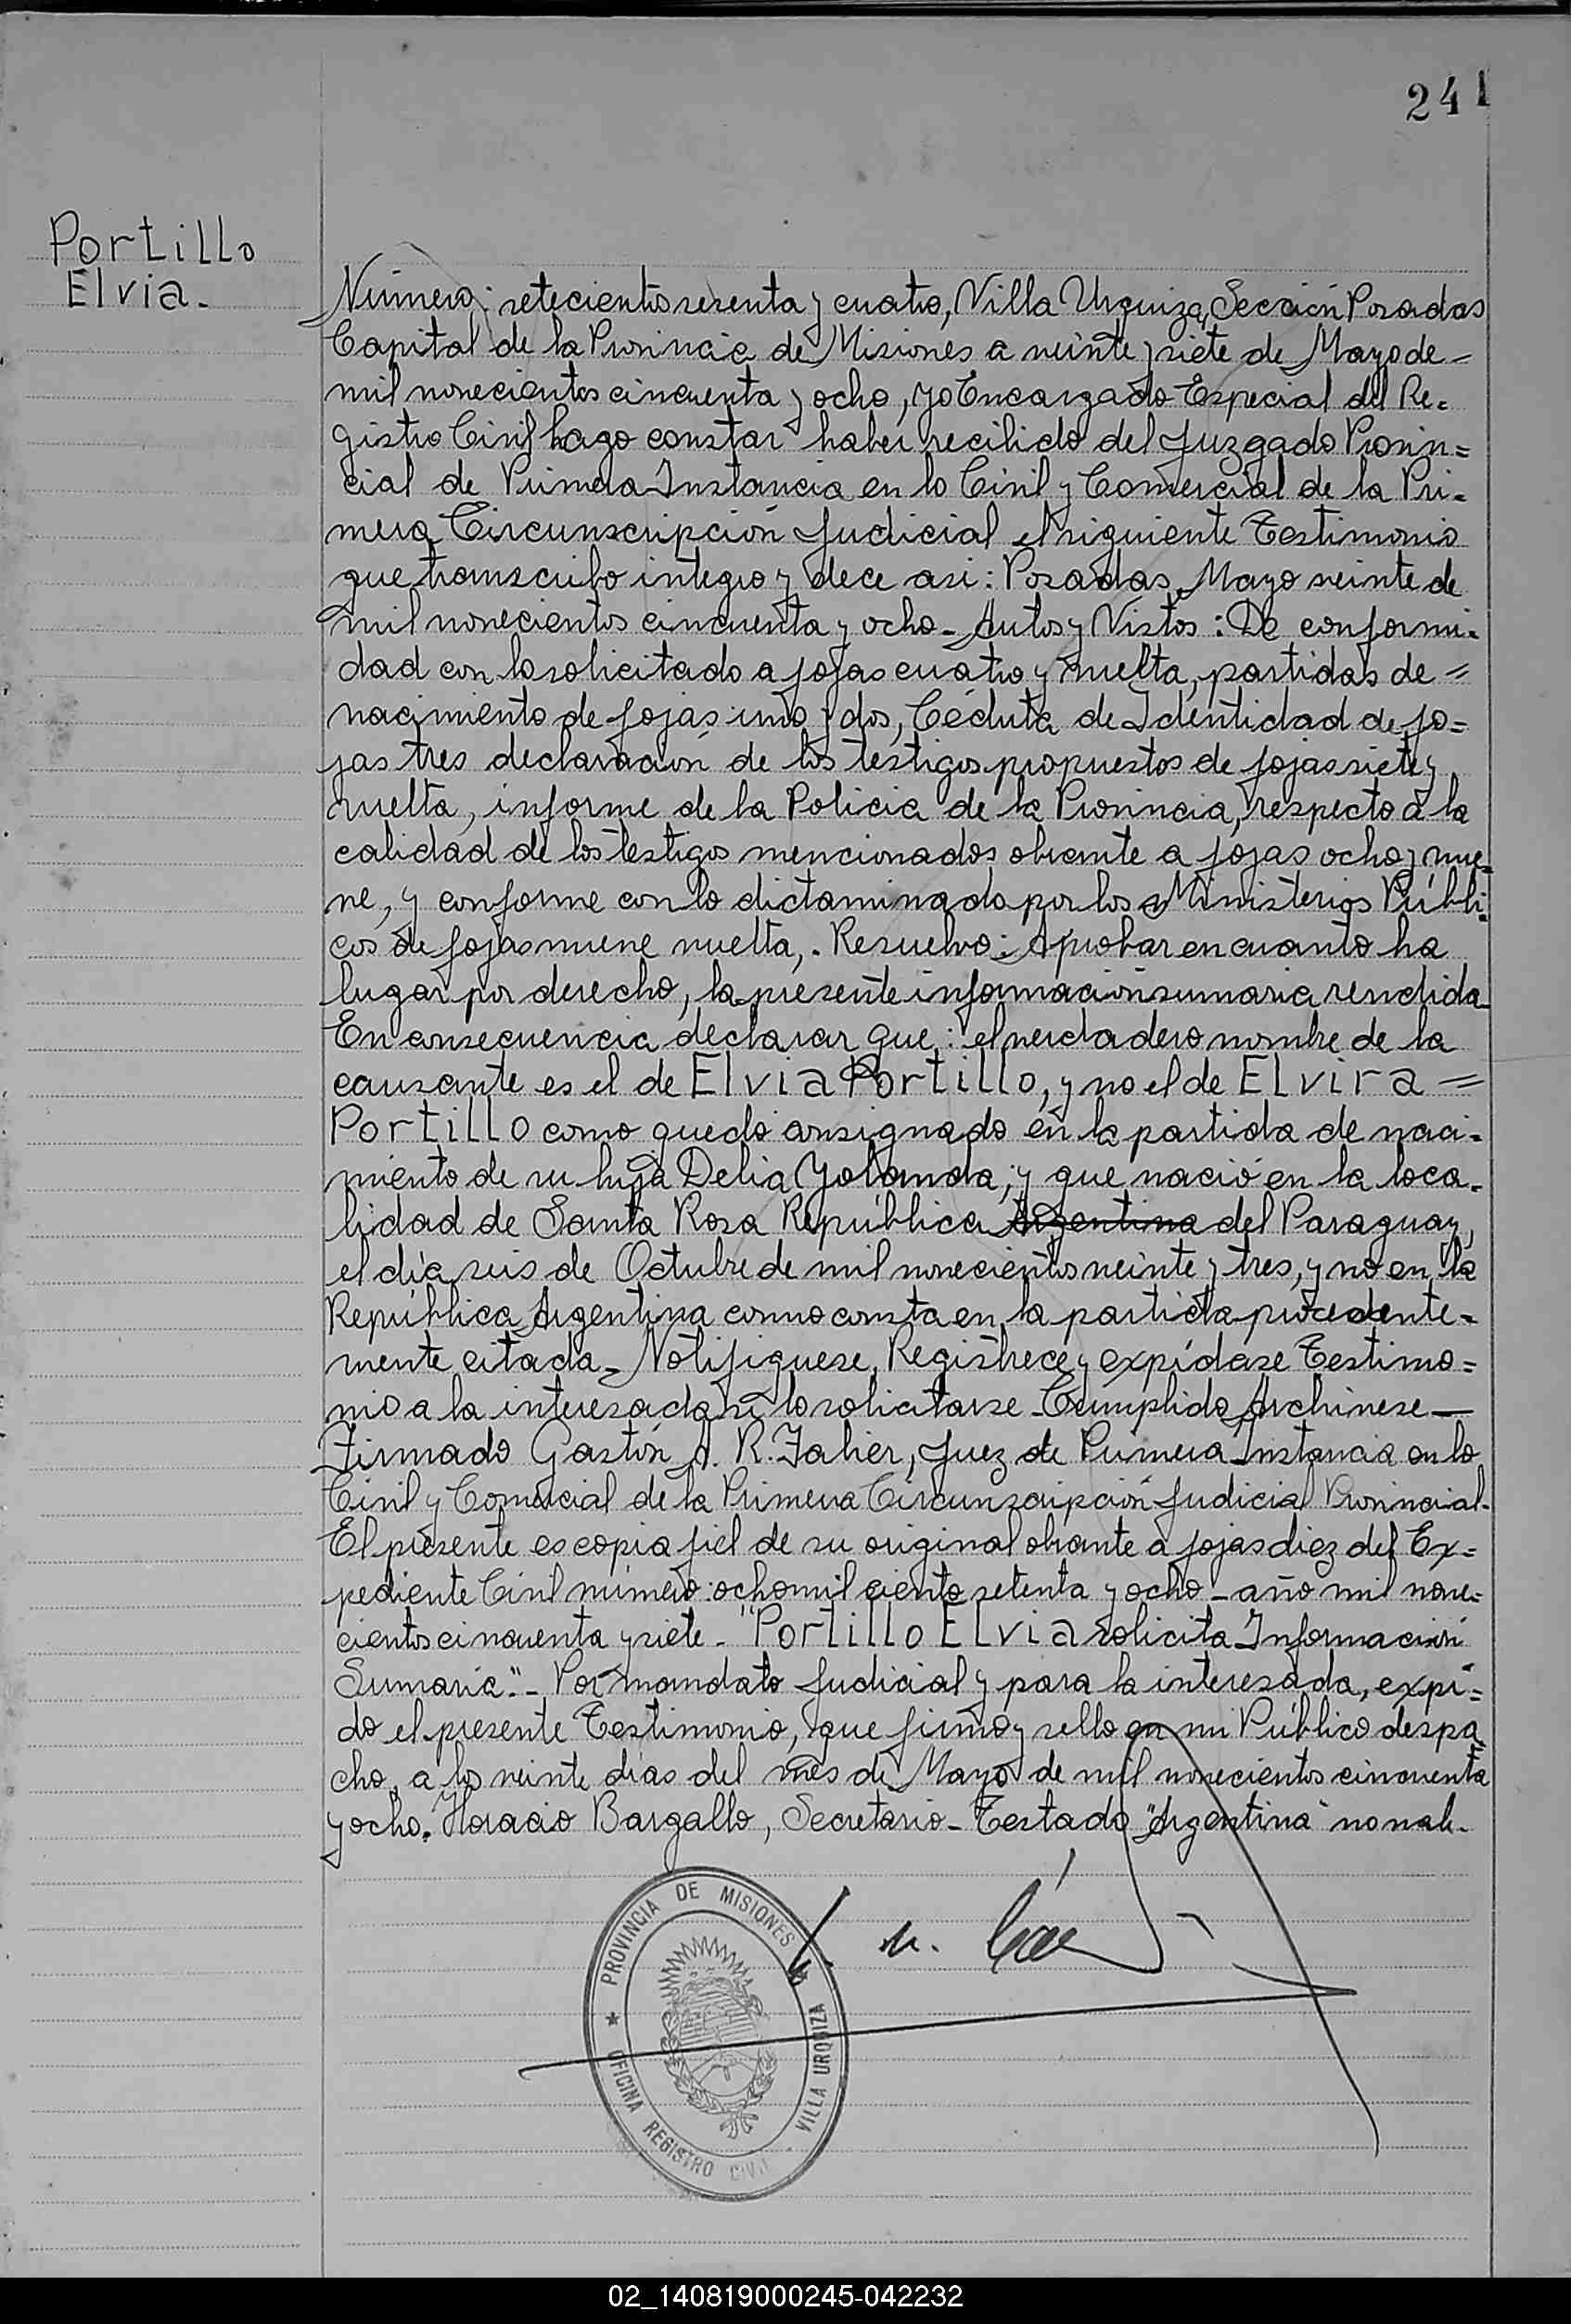 241
Portillo
Elvia.
Número: setecientos sesenta y cuatro, Villa Urquiza, Sección Posadas
Capital de la Provincia de Misiones a veinte y siete de Mayo de -
mil novecientos cincuenta y ocho, yo Encargado Especial del Re=
gistro Civil hago constar haber recibido del Juzgado Provin=
cial de Primera Instancia en lo Civil y Comercial de la Pri-
mera Circunscripción Judicial el siguiente Testimonio
que transcribo integro y dece asi: Posadas, Mayo veinte de
mil novecientos cincuenta y ocho - Autos y Vistos: De conformi-
dad con lo solicitado a fojas cuatro y vuelta, partidas de =
nacimiento de fojas uno y dos, Cédula de Identidad de fo=
jas tres declaración de los testigos propuestos de fojas siete y
vuelta, informe de la Policia de la Provincia, respecto a la
calidad de los testigos mencionados obrante a fojas ocho y nue-
ve, y conforme con lo dictaminado por los Ministerios Públi-
cos de fojas nueve vuelta,. Resuelvo: Aprobar en cuanto ha
lugar por derecho, la presente información sumaria rendida-
En consecuencia declarar que: el verdadero nombre de la
causante es el de Elvia Portillo, y no el de Elvira =
Portillo como quedo consignado en la partida de naci-
miento de su hija Delia Yolanda; y que nació en la loca-
lidad de Santa Rosa República Argentina del Paraguay,
el día seis de Octubre de mil novecientos veinte y tres, y no en la
República Argentina como consta en la partida procedente-
mente citada - Notifiquese, Registrece y expídase Testimo=
nio a la interesada si lo solicitarse - Cumplido Archivese -
Firmado Gastón A. R. Falier, Juez de Primera Instancia en lo
Civil y Comercial de la Primera Circunscripción Judicial Provincial-
El presente es copia fiel de su original obrante a fojas diez del Ex=
pediente Civil número: ocho mil ciento setenta y ocho - año mil nove-
cientos cincuenta y siete - "Portillo Elvia solicita Información
Sumaria". - Por mandato Judicial y para la interesada, expi=
do el presente Testimonio, que firmo y sello en mi Público despa-
cho, a los veinte días del mes de Mayo de mil novecientos cincuenta
y ocho. Horacio Bargallo, Secretario - Testado "Argentina" no vale.
PROVINCIA DE MISIONES
VILLA URQUIZA
OFICINA REGISTRO CIVIL
02_140819000245-042232